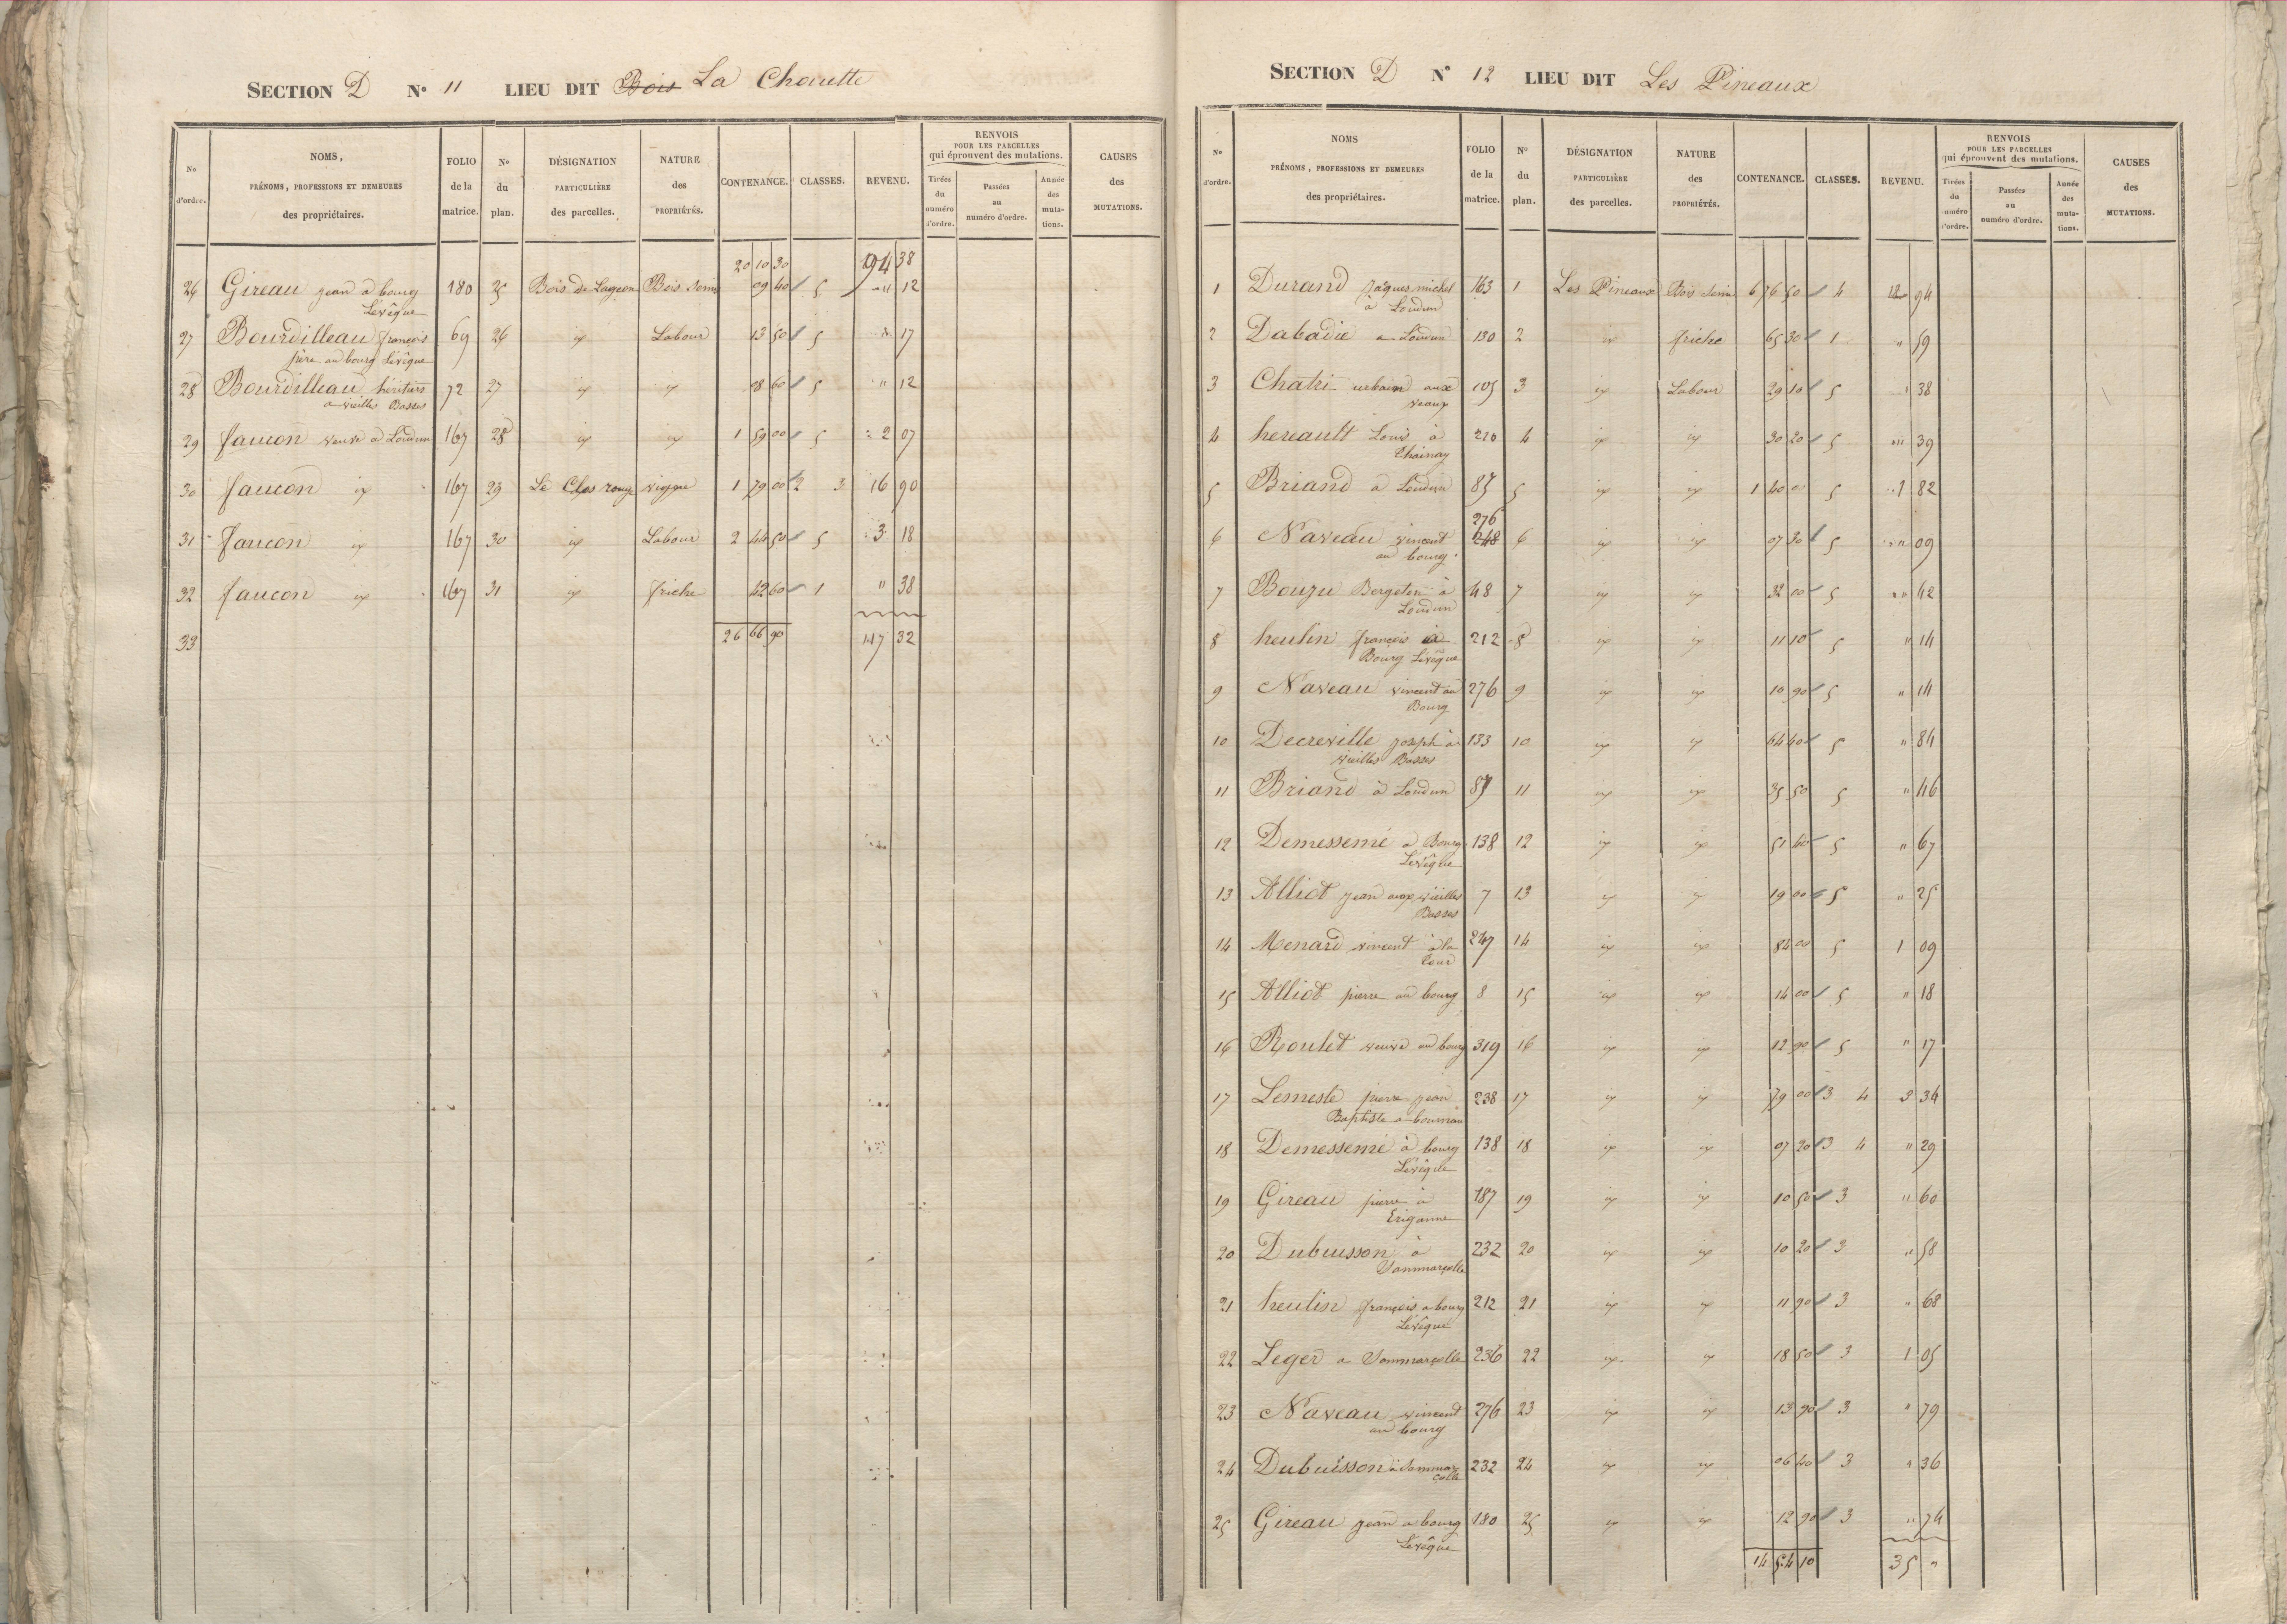 SECTION D N° 11 LIEU DIT Bois La Chouette
N° d'ordre. NOMS, PRÉNOMS, PROFESSIONS ET DEMEURES des propriétaires. FOLIO de la matrice. N° du plan. DÉSIGNATION PARTICULIÈRE des parcelles. NATURE des PROPRIÉTÉS. CONTENANCE. CLASSES. REVENU. RENVOIS POUR LES PARCELLES qui éprouvent des mutations. Tirées du numéro d'ordre. Passées au numéro d'ordre. Année des mutations. CAUSES des MUTATIONS.
20 10 30 94 38
26 Gireau jean à bourg 180 25 Bois de Lageon Bois Semis 09 40 5 " 12
Lévêque
27 Bourdilleau françois 69 26 id Labour 13 50 5 " 17
père au bourg Lévêque
28 Bourdilleau héritiers 72 27 id id 28 60 5 " 12
a vieilles Basses
29 faucon veuve à Loudun 167 28 id id 1 59 00 5 2 07
30 faucon id 167 29 Le Clos rouge vigne 1 79 00 2 3 16 90
31 faucon id 167 30 id Labour 2 44 50 5 3 18
32 faucon id 167 31 id friche 42 60 1 " 38
33 26 66 90 117 32
SECTION D N° 12 LIEU DIT Les Pineaux
N° d'ordre. NOMS PRÉNOMS, PROFESSIONS ET DEMEURES des propriétaires. FOLIO de la matrice. N° du plan. DÉSIGNATION PARTICULIÈRE des parcelles. NATURE des PROPRIÉTÉS. CONTENANCE. CLASSES. REVENU. RENVOIS POUR LES PARCELLES qui éprouvent des mutations. Tirées du numéro d'ordre. Passées au numéro d'ordre. Année des mutations. CAUSES des MUTATIONS.
1 Durand Jaques michel 163 1 Les Pineaux Bois Semis 6 76 50 4 18 94
à Loudun
2 Dabadie a Loudun 130 2 id friche 65 30 1 " 59
3 Chatri urbain aux 105 3 id Labour 29 10 5 " 38
veaux
4 hereault Louis à 210 4 id id 30 20 5 " 39
Thainay
5 Briand a Loudun 85 5 id id 1 40 00 5 1 82
276
6 Naveau vincent 248 6 id id 07 30 5 " 09
au bourg
7 Bouzu Bergeten à 48 7 id id 32 00 5 " 42
Loudun
8 heulin françois à 212 8 id id 11 10 5 " 14
Bourg Lévêque
9 Naveau vincent au 276 9 id id 10 90 5 " 14
Bourg
10 Decreville joseph à 133 10 id id 64 40 5 " 84
vieilles Basses
11 Briand à Loudun 85 11 id id 35 50 5 " 46
12 Demessemé a Bourg 138 12 id id 51 40 5 " 67
Lévêque
13 Alliot jean aux vieilles 7 13 id id 19 00 5 " 25
Basses
14 Menard vincent à la 247 14 id id 84 00 5 1 09
Cour
15 Alliot pierre au bourg 8 15 id id 14 00 5 " 18
16 Roulet veuve au bourg 319 16 id id 12 90 5 " 17
17 Lemesle pierre jean 238 17 id id 79 00 3 4 2 34
Baptiste a bournan
18 Demessemé à bourg 138 18 id id 07 20 3 4 " 29
Lévêque
19 Gireau pierre à 187 19 id id 10 50 3 " 60
Triganne
20 Dubuisson à 232 20 id id 10 20 3 " 58
Sammarçolle
21 heulin françois a bourg 212 21 id id 11 90 3 " 68
Lévêque
22 Leger a Sammarçolle 236 22 id id 18 50 3 1 05
23 Naveau vincent 276 23 id id 13 90 3 " 79
au bourg
24 Dubuisson à Sammar 232 24 id id 06 40 3 " 36
çolle
25 Gireau jean a bourg 180 25 id id 12 90 3 " 74
Lévêque
14 54 10 35 "